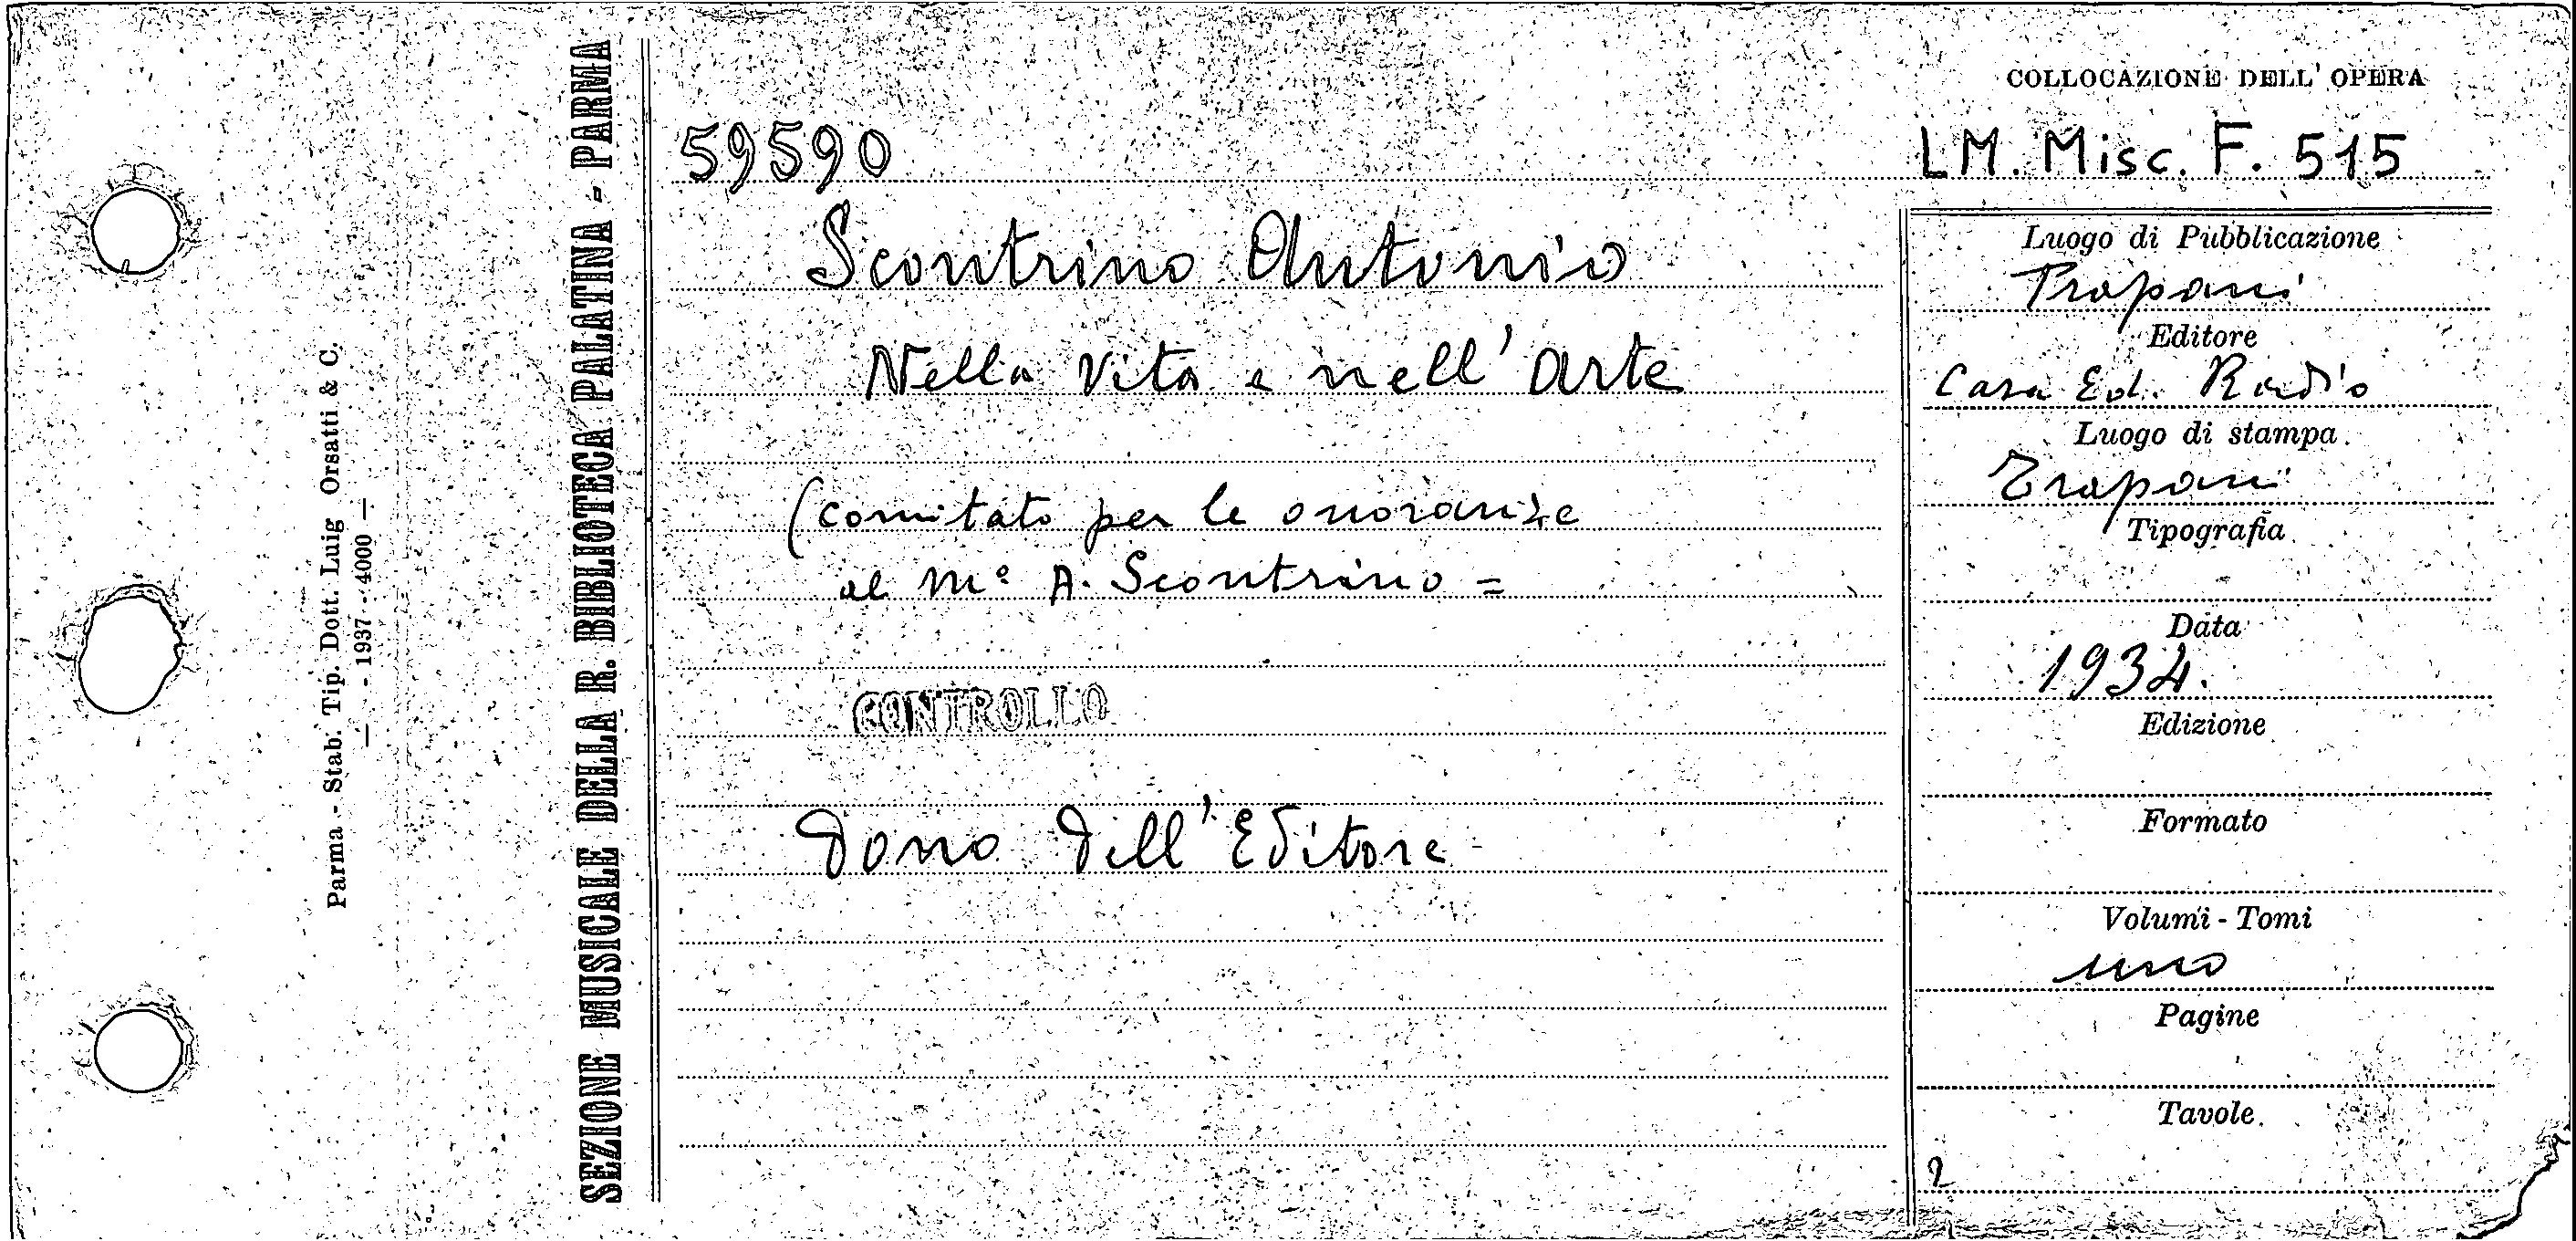 Parma - Stab. Tip. Dott. Luig Orsatti & C.
— - 1937 - 4000 —
SEZIONE MUSICALE DELLA R. BIBLIOTECA PALATINA - PARMA
COLLOCAZIONE DELL' OPERA
59590
LM. Misc. F. 515
Scontrino Antonio
Nella Vita e nell' Arte
(comitato per le onoranze
al M° A. Scontrino =
CONTROLLO
Dono dell' Editore
Luogo di Pubblicazione
Trapani
Editore
Casa Ed. Radio
Luogo di stampa
Trapani
Tipografia
Data
1934.
Edizione
Formato
Volumi - Tomi
uno
Pagine
Tavole
2